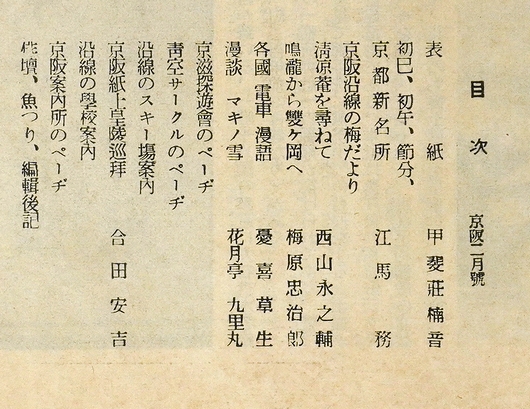 目次 京阪二月號
表紙 甲斐莊楠音
初巳、初午、節分、
京都新名所 江馬務
京阪沿線の梅だより
淸凉菴を尋ねて 西山永之輔
鳴瀧から雙ケ岡へ 梅原忠治郎
各國電車漫語 憂喜草生
漫談 マキノ雪 花月亭九里丸
京滋探遊會のページ
靑空サークルのページ
沿線のスキー場案內
京阪紙上皇陵巡拜 合田安吉
沿線の學校案內
京阪案內所のページ
俳壇、魚つり、編輯後記